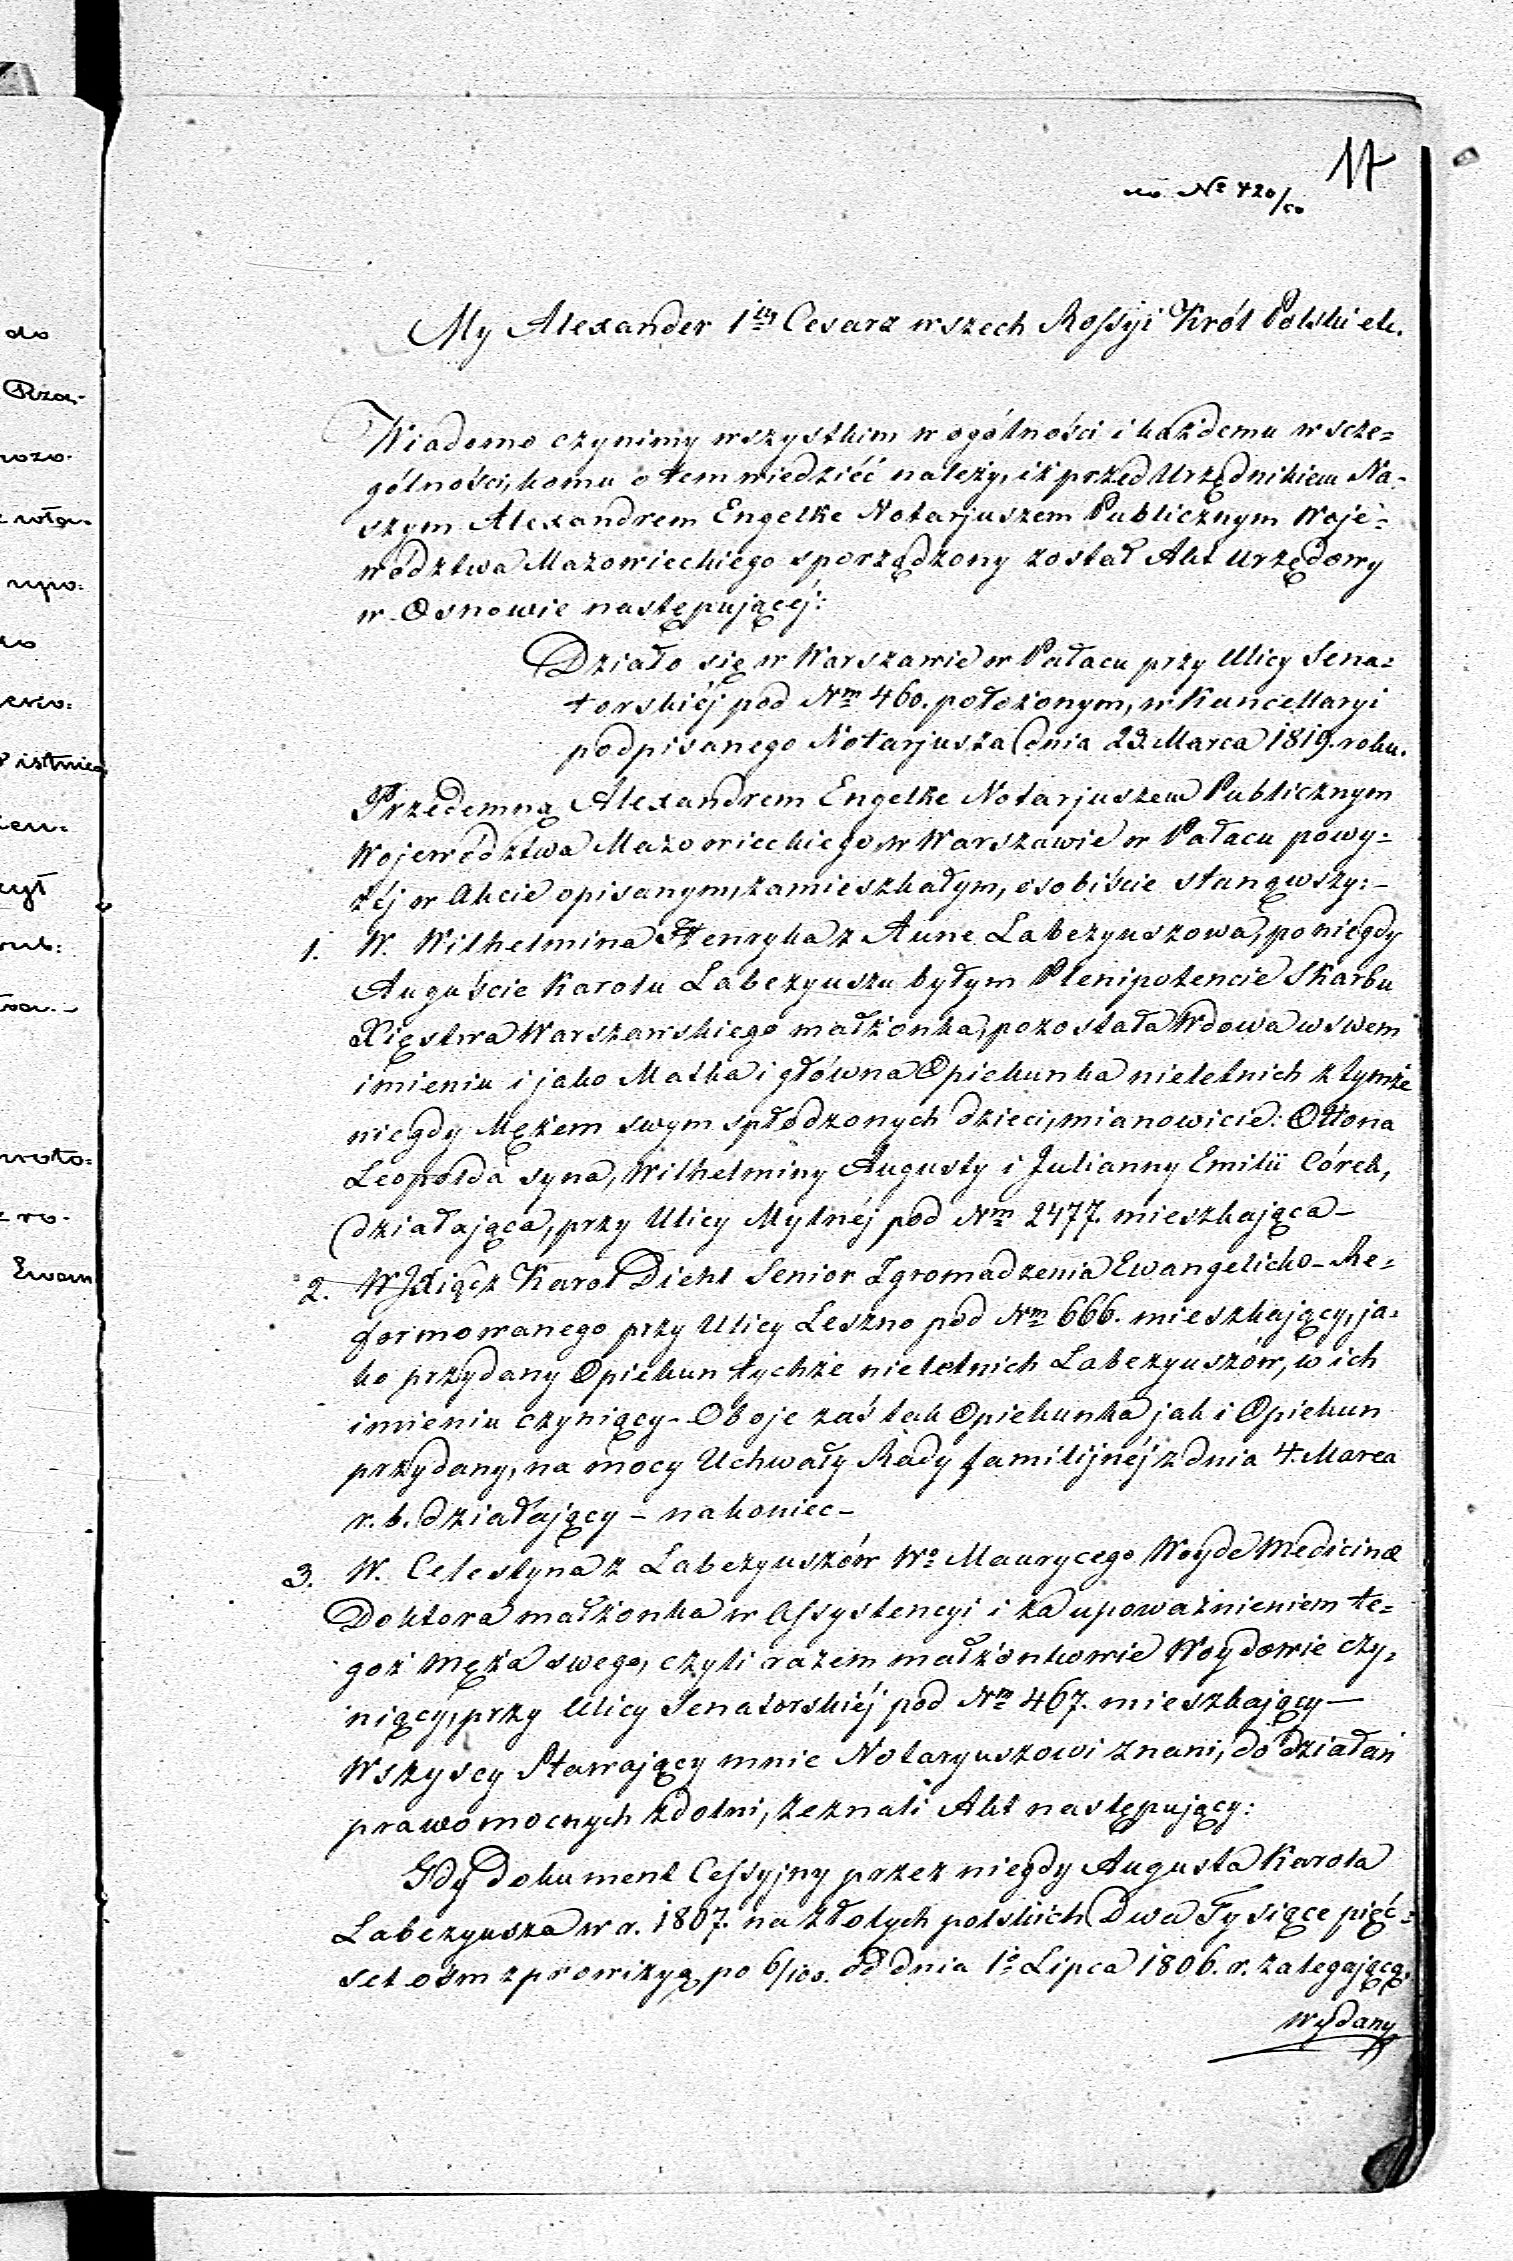 17
do No 420/50
My Alexander 1szy Cesarz wszech Rossyi Król Polski etc.
Wiadomo czynimy wszystkim w ogólności i każdemu w szcze=
gólności, komu o tem wiedzićć należy, iż przed Urzędnikiem Na=
szym Alexandrem Engelke Notarjuszem Publicznym Woje=
wództwa Mazowieckiego sporządzony został Akt Urzędowy
w Osnowie następującéj:
Działo się w Warszawie w Pałacu przy Ulicy Sena=
torskiéj pod Nm 460. położonym, w Kancellaryi
podpisanego Notarjusza dnia 23. Marca 1819. roku.
Przedemną Alexandrem Engelke Notarjuszem Publicznym
Województwa Mazowieckiego, w Warszawie w Pałacu powy=
żéj w Akcie opisanym, zamieszkałym, osobiście stanąwszy: -
1. W. Wilhelmina Henryka z Aune Labezyuszowa, po niegdy
Auguście Karolu Labezyuszu byłym Plenipotencie Skarbu
Xięstwa Warszawskiego małżonka, pozostała Wdowa w swem
imieniu i jako Matka i główna Opiekunka nieletnich z tymże
niegdy Mężem swym spłodzonych dzieci, mianowicie: Ottona
Leopolda syna, Wilhelminy Augusty i Julianny Emilii Córek,
działająca, przy Ulicy Mylnéj pod Nm 2477. mieszkająca -
2. W Xiądz Karol Diehl Senior Zgromadzenia Ewangelicko-Re=
formowanego przy Ulicy Leszno pod Nm 666. mieszkający, ja=
ko przydany Opiekun tychże nieletnich Labezyuszów, w ich
imieniu czyniący - Oboje zaś tak Opiekunka jak i Opiekun
przydany, na mocy Uchwały Rady familijnéj z dnia 4. Marca
r. b. działający - nakoniec -
3. W. Celestyna z Labezyuszów Wo Maurycego Woyde Medicinæ
Doktora małżonka w Assystencyi i za upoważnieniem te=
goż męża swego, czyli razem małżonkowie Woydowie czy=
niący, przy Ulicy Senatorskiéj pod Nm 467. mieszkający —
Wszyscy Stawający mnie Notaryuszowi znani, do działań
prawomocnych zdolni, zeznali Akt następujący:
Gdy dokument Cessyjny przez niegdy Augusta Karola
Labezyusza w r. 1807. na złotych polskich Dwa Tysiące pięć=
set ośm z prowizyą po 6/100. od dnia 1o Lipca 1806. r. zalegającą,
wydany
do
Rzą-
wła-
upo-
istnie
Ewan